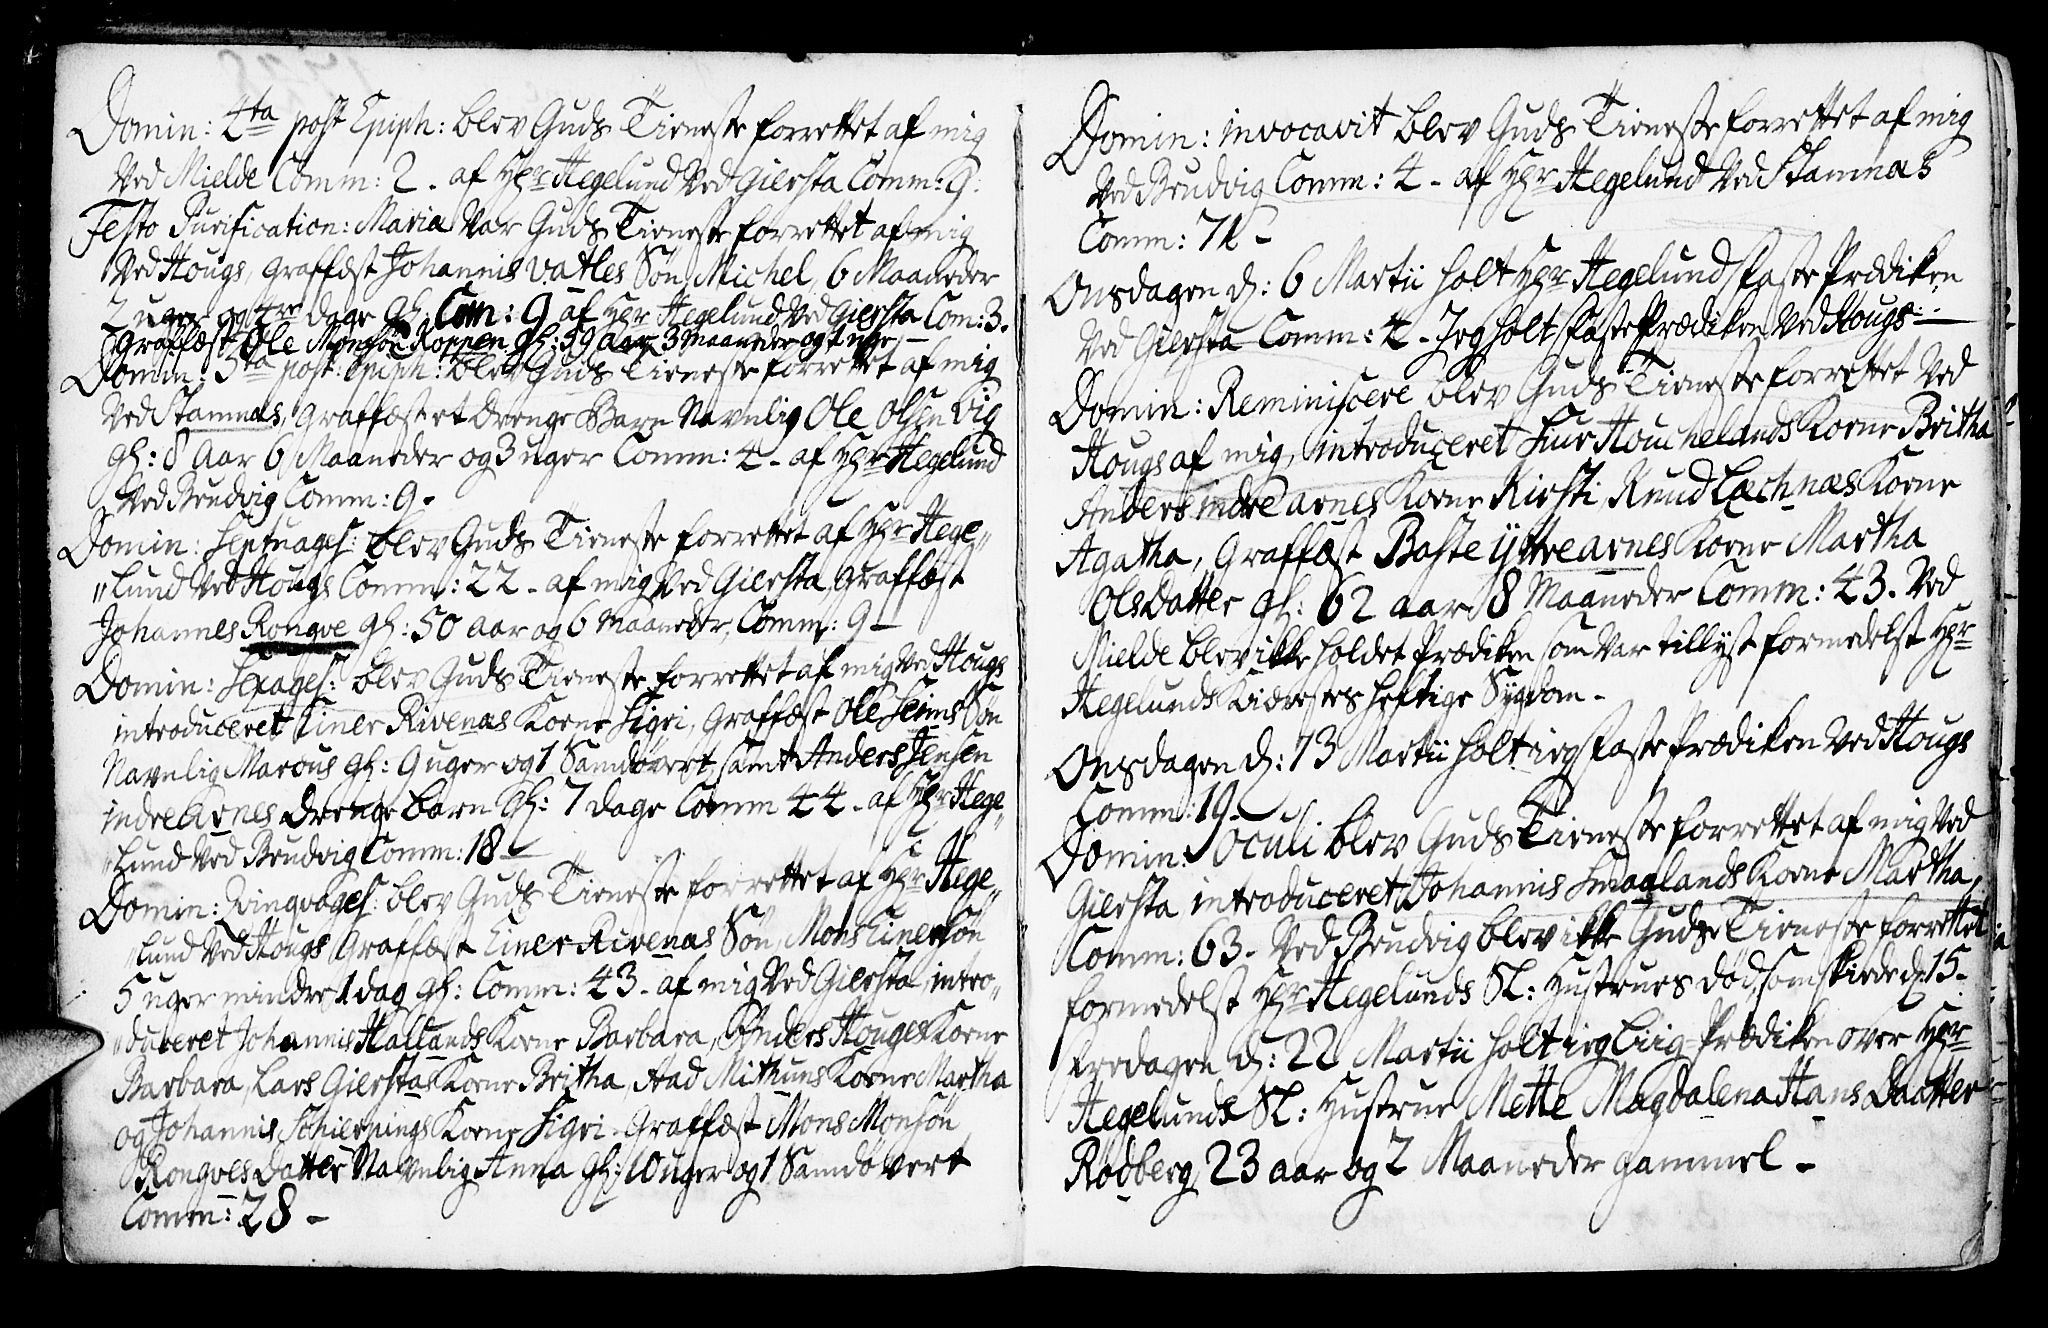 Domin: 4ta post Epiph: blev Guds Tieneste forrettet af mig
Ved Mielde Comm: 2. af Hr Hegelund Ved Giersta Comm: 9.
Festo Purification: Maria Var Guds Tieneste forrettet af mig
Ved Hougs, Graffæst Johannis vatles Søn Michel, 6 Maaneder
2 uger og 4re dage gl: Com: 9 af Hr Hegelund Ved Giersta Com: 3.
Graffæst Ole Monsøn Roppen gl: 59 aar 3 maaneder og 1 uge
Domin: 5ta post Epiph: blev Guds Tieneste forrettet af mig
Ved Stamnæs, Graffæst et Drenge Barn Navnlig Ole Olsen Vig
gl: 8 Aar 6 Maaneder og 3 uger Comm: 4. af Hr Hegelund
Ved Brudvig Comm: 9.
Domin: Septuages: blev Guds Tieneste forrettet af Hr Hege„
„Lund Ved Hougs Comm: 22. af mig Ved Giersta, Graffæst
Johannes Rongve gl: 50 aar og 6 Maaneder, Comm: 9
Domin: Sexages: blev Guds Tieneste forrettet af mig Ved Hougs
introduceret Einer Rivenæs Kone Sigri, Graffæst Ole Seims Søn
Navnlig Marcus gl: 9 uger og 1 Samdøvert, samt Anders Jensen
indre Arnes Drenge barn gl: 7 dage Comm 44. af Hr Hege„
„Lund Ved Brudvig Comm: 18
Domin: Qvinqvages: blev Guds Tieneste forrettet af Hr Hege„
„Lund Ved Hougs Graffæst Einer Rivenæs Søn, Mons Einersøn
5 uger mindre 1 dag gl: Comm: 43. af mig Ved Giersta, intro„
„duceret Johannis Hallands Kone Barbara, Anders Houges Kone
Barbara, Lars Gierstas Kone Britha, Aad Mithuns Kone Martha
og Johannis Schiernings Kone Sigri. Graffæst Mons Monsøn
Rongves Datter Navnlig Anna gl: 10 uger og 1 Samdøvert
Comm: 28.
Domin: invocavit blev Guds Tieneste forrettet af mig
Ved Brudvig Comm: 4. af Hr Hegelund Ved Stamnæs
Comm: 71.
Onsdagen d: 6 Martii holt Hr Hegelund Faste Prædiken
Ved Giersta Comm: 4. Jeg holt Faste Prædiken Ved Hougs.
Domin: Reminiscere blev Guds Tieneste forrettet Ved
Hougs af mig, introduceret Siur Houchelands Kone Britha
Anders indre arnes Kone Kirsti, Knud Læchnæs Kone
Agatha, Graffæst Baste Ÿttre arnes Kone Martha
Ols Datter gl: 62 aar 8 Maaneder Comm: 43. Ved
Mielde blev ikke holdet Prædiken som Var tillyst formedelst Hr
Hegelunds Kiærestes heftige Sygdom.
Onsdagen d: 13 Martii holt ieg Faste Prædiken Ved Hougs
Comm: 19.
Domin: Oculi blev Guds Tieneste forrettet af mig Ved
Giersta introduceret Johannis Smaglands Kone Martha,
Comm: 63. Ved Brudvig blev ikke Guds Tieneste forrettet
formedelst Hr Hegelunds Sl: Hustrues død, som skiede d: 15.
Fredagen d: 22 Martii holt ieg Liig-Prædiken over Hr
Hegelunds Sl: Hustrue Mette Magdalena Hans Daatter
Rødberg 23 aar og 2 Maaneder gammel.